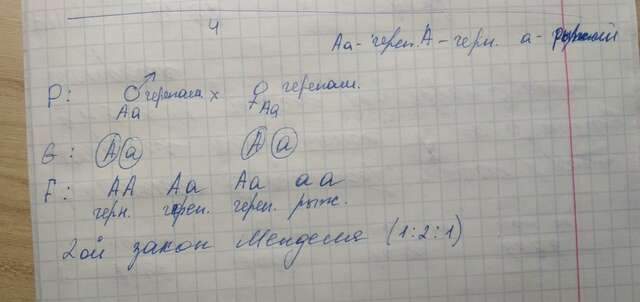 4
Aa - череп. A - черн. a - рыжий
P: ♂ черепах. x ♀ черепах.
Aa Aa
G: A a A a
F: AA Aa Aa aa
черн. череп. череп. рыж.
2ой закон Менделя (1:2:1)